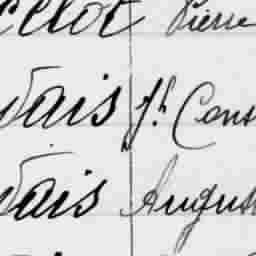 celot Pierre
dais Jh. Cons
dais August